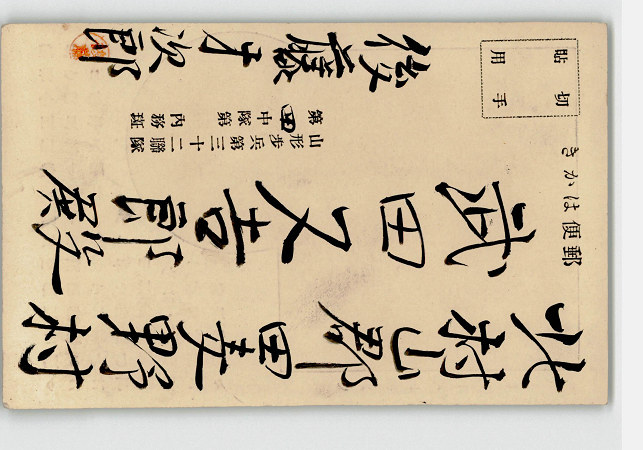 郵便はかき
切手
貼用
北村山郡田麦野村
武田又吉郎殿
山形歩兵第三十二聯隊
第四中隊第 内務班
後藤才次郎